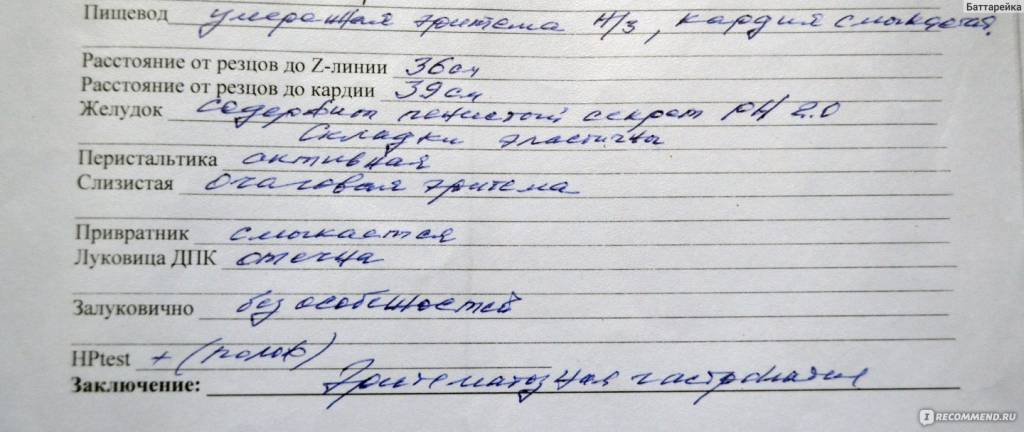 Баттарейка
Пищевод умеренная эритема н/з, кардия смыкается.
Расстояние от резцов до Z-линии 36см
Расстояние от резцов до кардии 39см
Желудок содержит пенистый секрет pH 2.0
Складки эластичны
Перистальтика активная
Слизистая очаговая эритема
Привратник смыкается
Луковица ДПК отечна
Залуковично без особеностей
HPtest + (полож)
Заключение: Эритематозная гастропатия
I RECOMMEND.RU